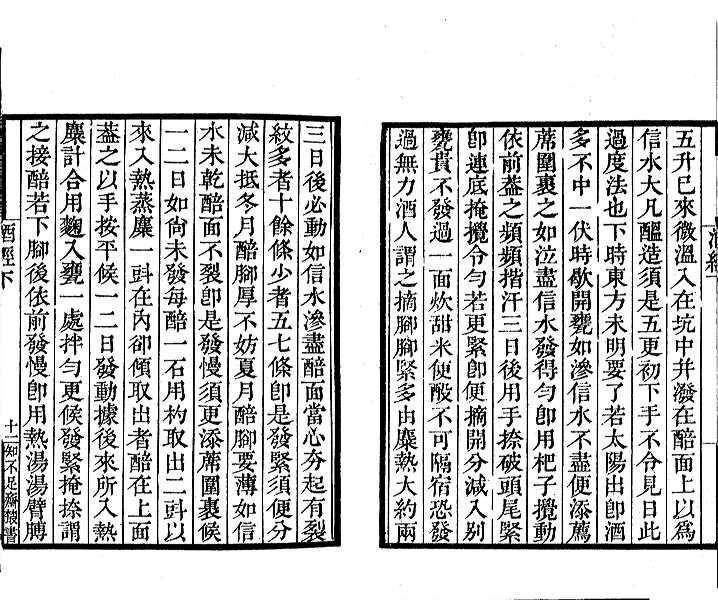 五升已來微溫入在坑中并潑在醅面上以爲
信水大凡醞造須是五更初下手不令見日此
過度法也下時東方未明要了若太陽出卽酒
多不中一伏時歇開甕如滲信水不盡便添薦
蓆圍裹之如泣盡信水發得勻卽用杷子攪動
依前葢之頻頻揩汗三日後用手捺破頭尾緊
卽連底掩攪令勻若更緊卽便摘開分減入別
甕貴不發過一面炊甜米便酘不可隔宿恐發
過無力酒人謂之摘腳腳緊多由麋熱大約兩
三日後必動如信水滲盡醅面當心夯起有裂
紋多者十餘條少者五七條卽是發緊須便分
減大抵冬月醅腳厚不妨夏月醅腳要薄如信
水未乾醅面不裂卽是發慢須更添蓆圍裹候
一二日如尚未發每醅一石用杓取出二㪷以
來入熱蒸麋一㪷在內卻傾取出者醅在上面
葢之以手按平候一二日發動據後來所入熱
麋計合用麴入甕一處拌勻更候發緊掩捺謂
之接醅若下腳後依前發慢卽用熱湯湯臂膊
酒經下
十二
知不足齋叢書